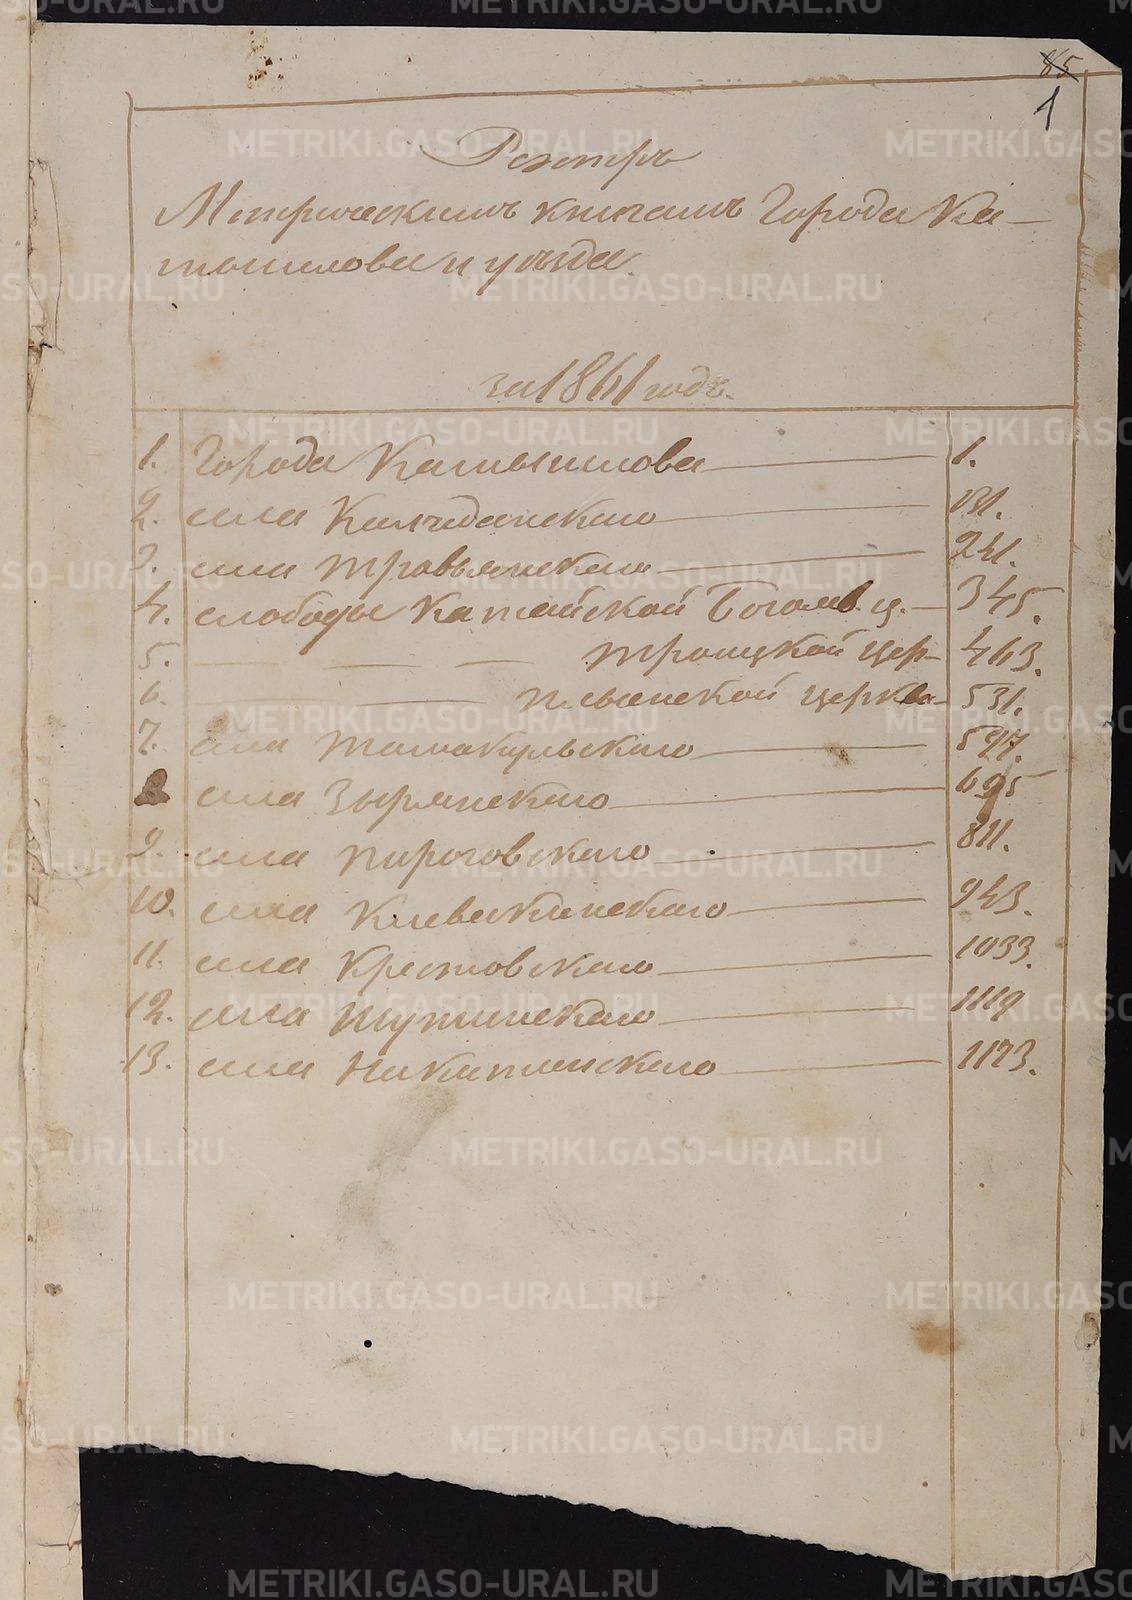 85
1
Реэстръ
Метрическимъ книгамъ Города Ка-
мышлова и уѣзда
за 1861 годъ.
1. Города Камышлова 1.
2. села Колчеданскаго 131.
3. села Травянскаго 241.
4. слободы Катайской Богояв. ц. 345.
5. Троицкой цер- 463.
6. Ильинской церкви 531.
7. села Тамакульскаго 597.
села Зырянскаго 695
9. села Пироговскаго 811.
10. села Клевакинскаго 943.
11. села Крестовскаго 1033.
12. села Шутинскаго 1119
13. села Никитинскаго 1173.
METRIKI.GASO-URAL.RU